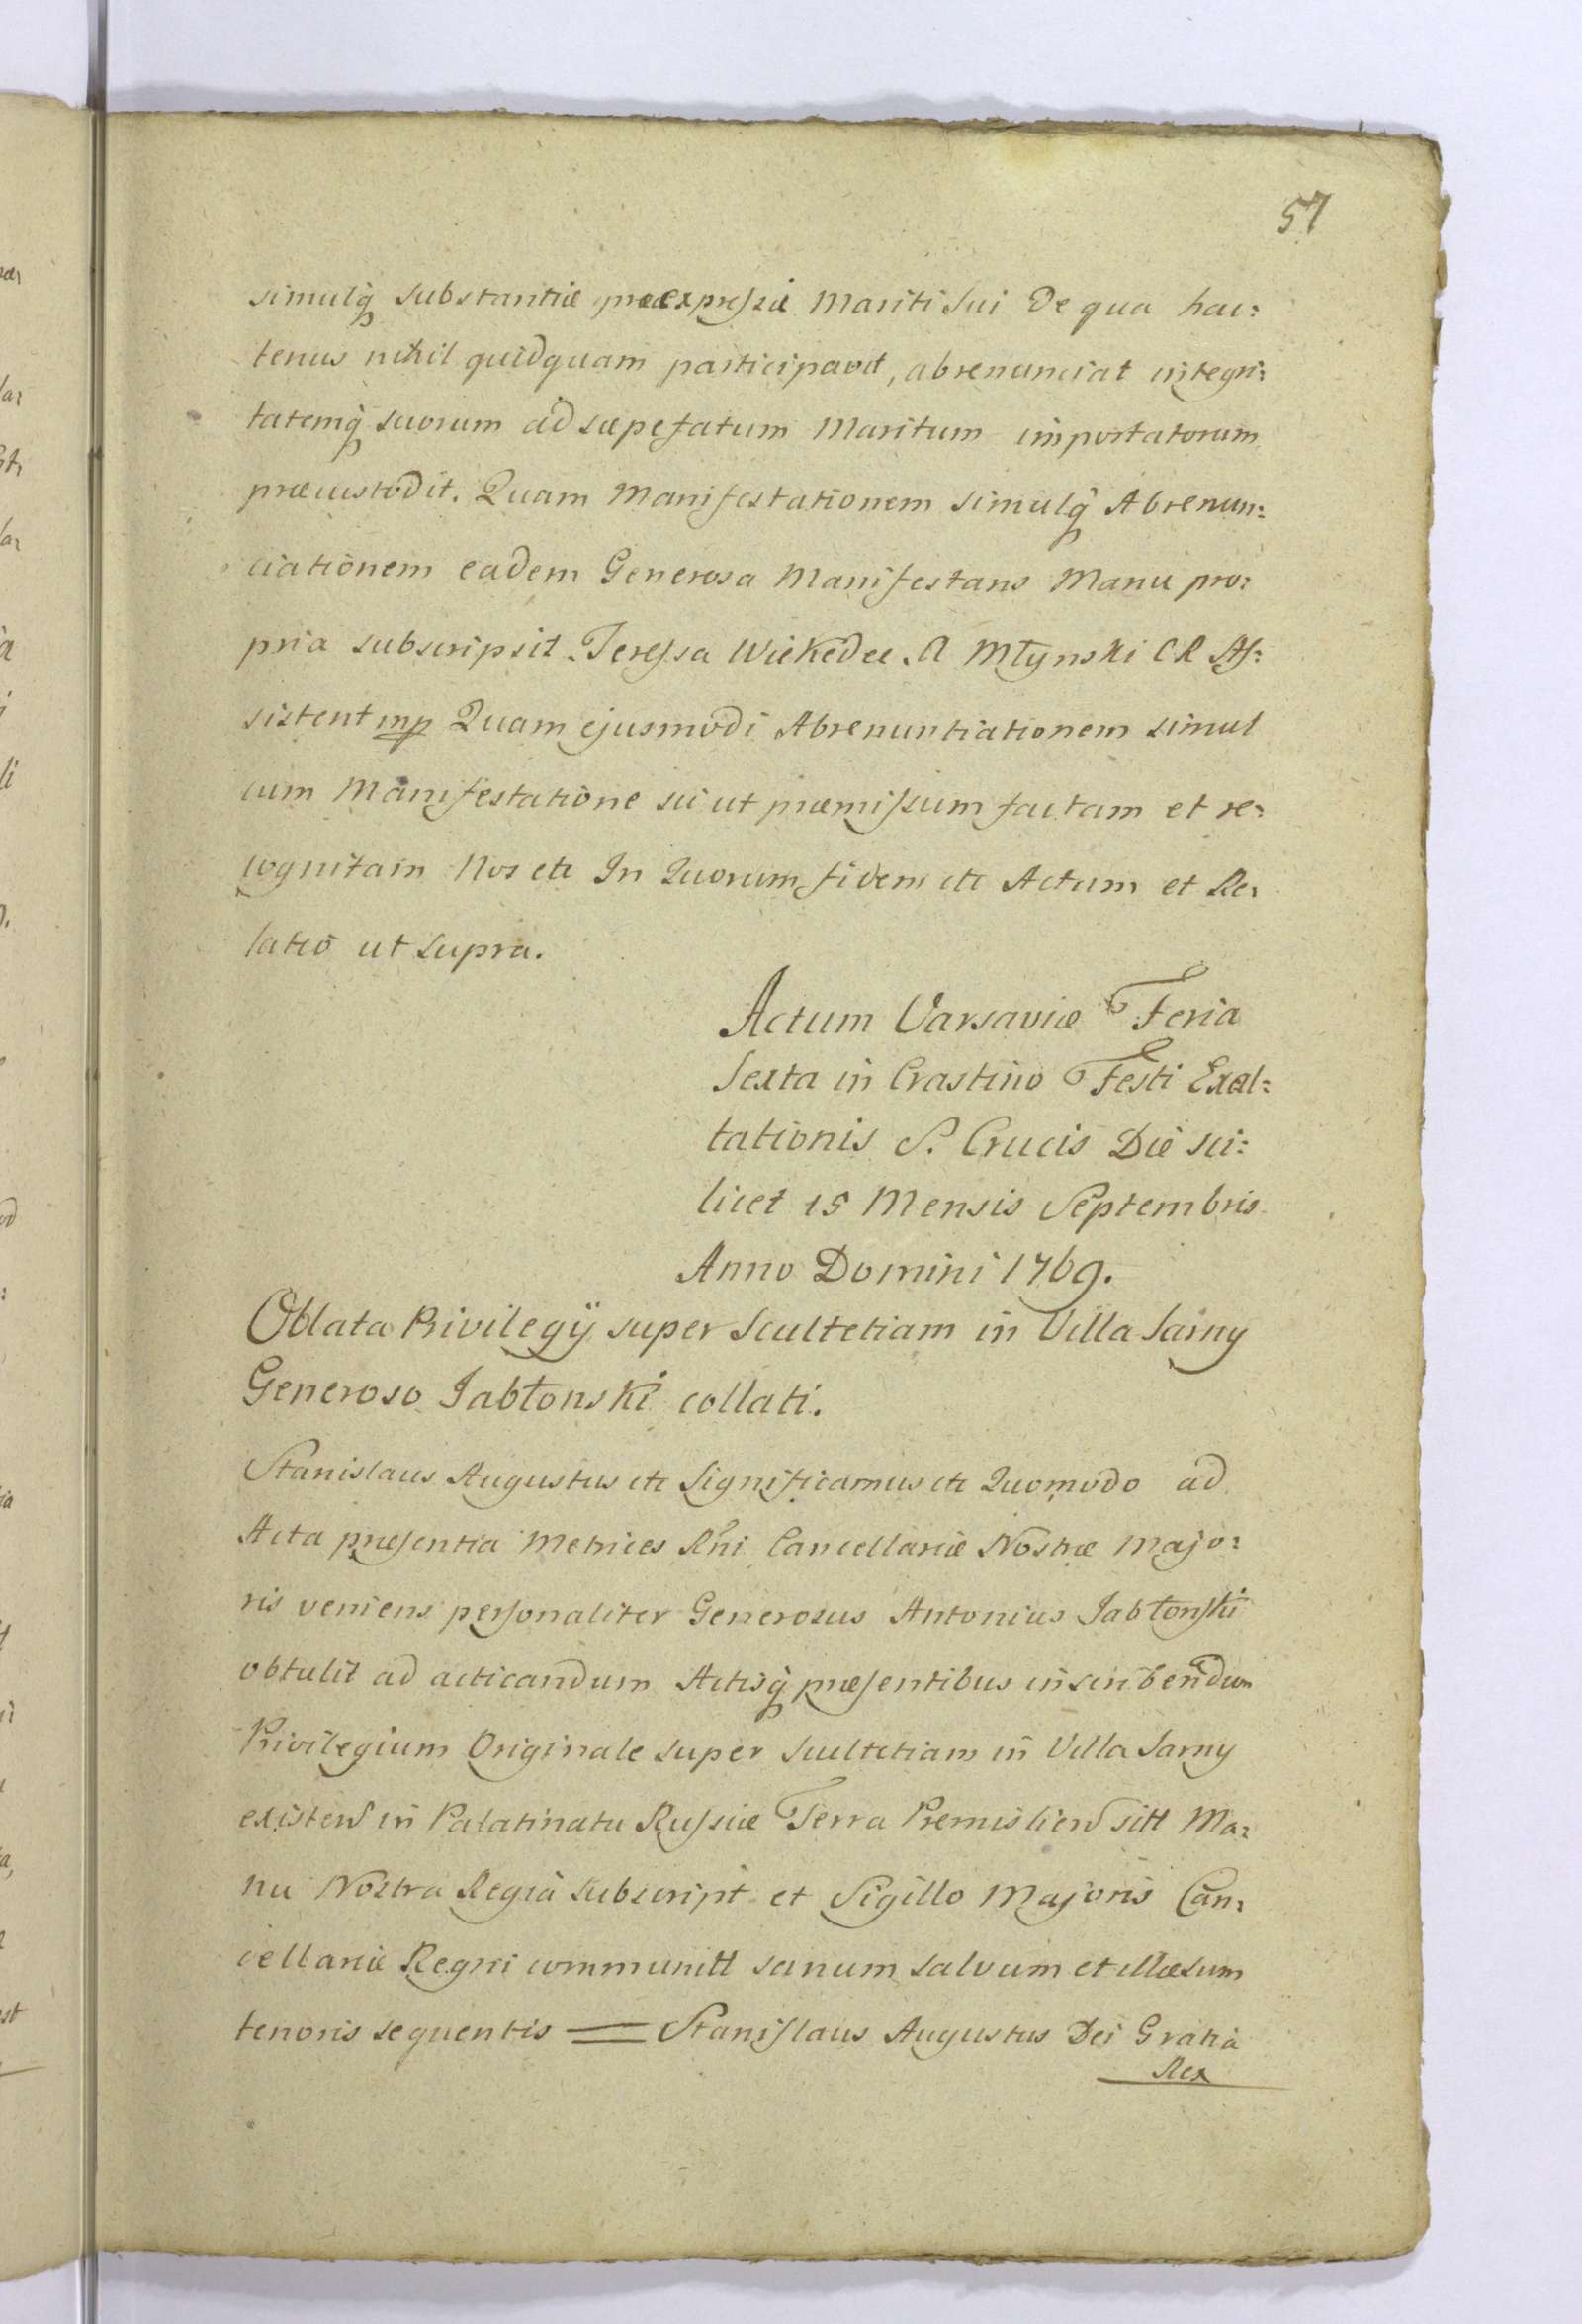 57
simulq́ substantiæ præexpressæ Mariti sui De qua hac:
tenus nihil quidquam participavit, abrenunciat integri:
tatemq́ suorum ad sæpefatum Maritum importatorum
præcustodit. Quam Manifestationem simulq́ Abrenun:
ciationem eadem Generosa Manifestans Manu pro:
pria subscripsit. Teressa Wiekedee. A Młynski CR As:
sistent mp Quam ejusmodi Abrenuntiationem simul
cum Manifestatione sic ut præmissum factam et re:
cognitam Nos etc In Quorum fidem etc Actum et Re:
latio ut supra.
Actum Varsaviæ Feria
Sexta in Crastino Festi Exal:
tationis S. Crucis Die sci:
licet 15 Mensis Septembris
Anno Domini 1769.
Oblata Privilegÿ super Scultetiam in Villa Sarny
Generoso Jabłonski collati.
Stanislaus Augustus etc Significamus etc Quomodo ad
Acta præsentia Metrices Rñi Cancellariæ Nostræ Majo:
ris veniens personaliter Generosus Antonius Jabłonski
obtulit ad acticandum Actisq́ præsentibus inscribendum
Privilegium Originale super Scultetiam in Villa Sarny
existen in Palatinatu Russiæ Terra Premislien sitt Ma:
nu Nostra Regia subscript et Sigillo Majoris Can:
cellariæ Regni communitt sanum salvum et illæsum
tenoris sequentis = Stanislaus Augustus Dei Gratia
Rex